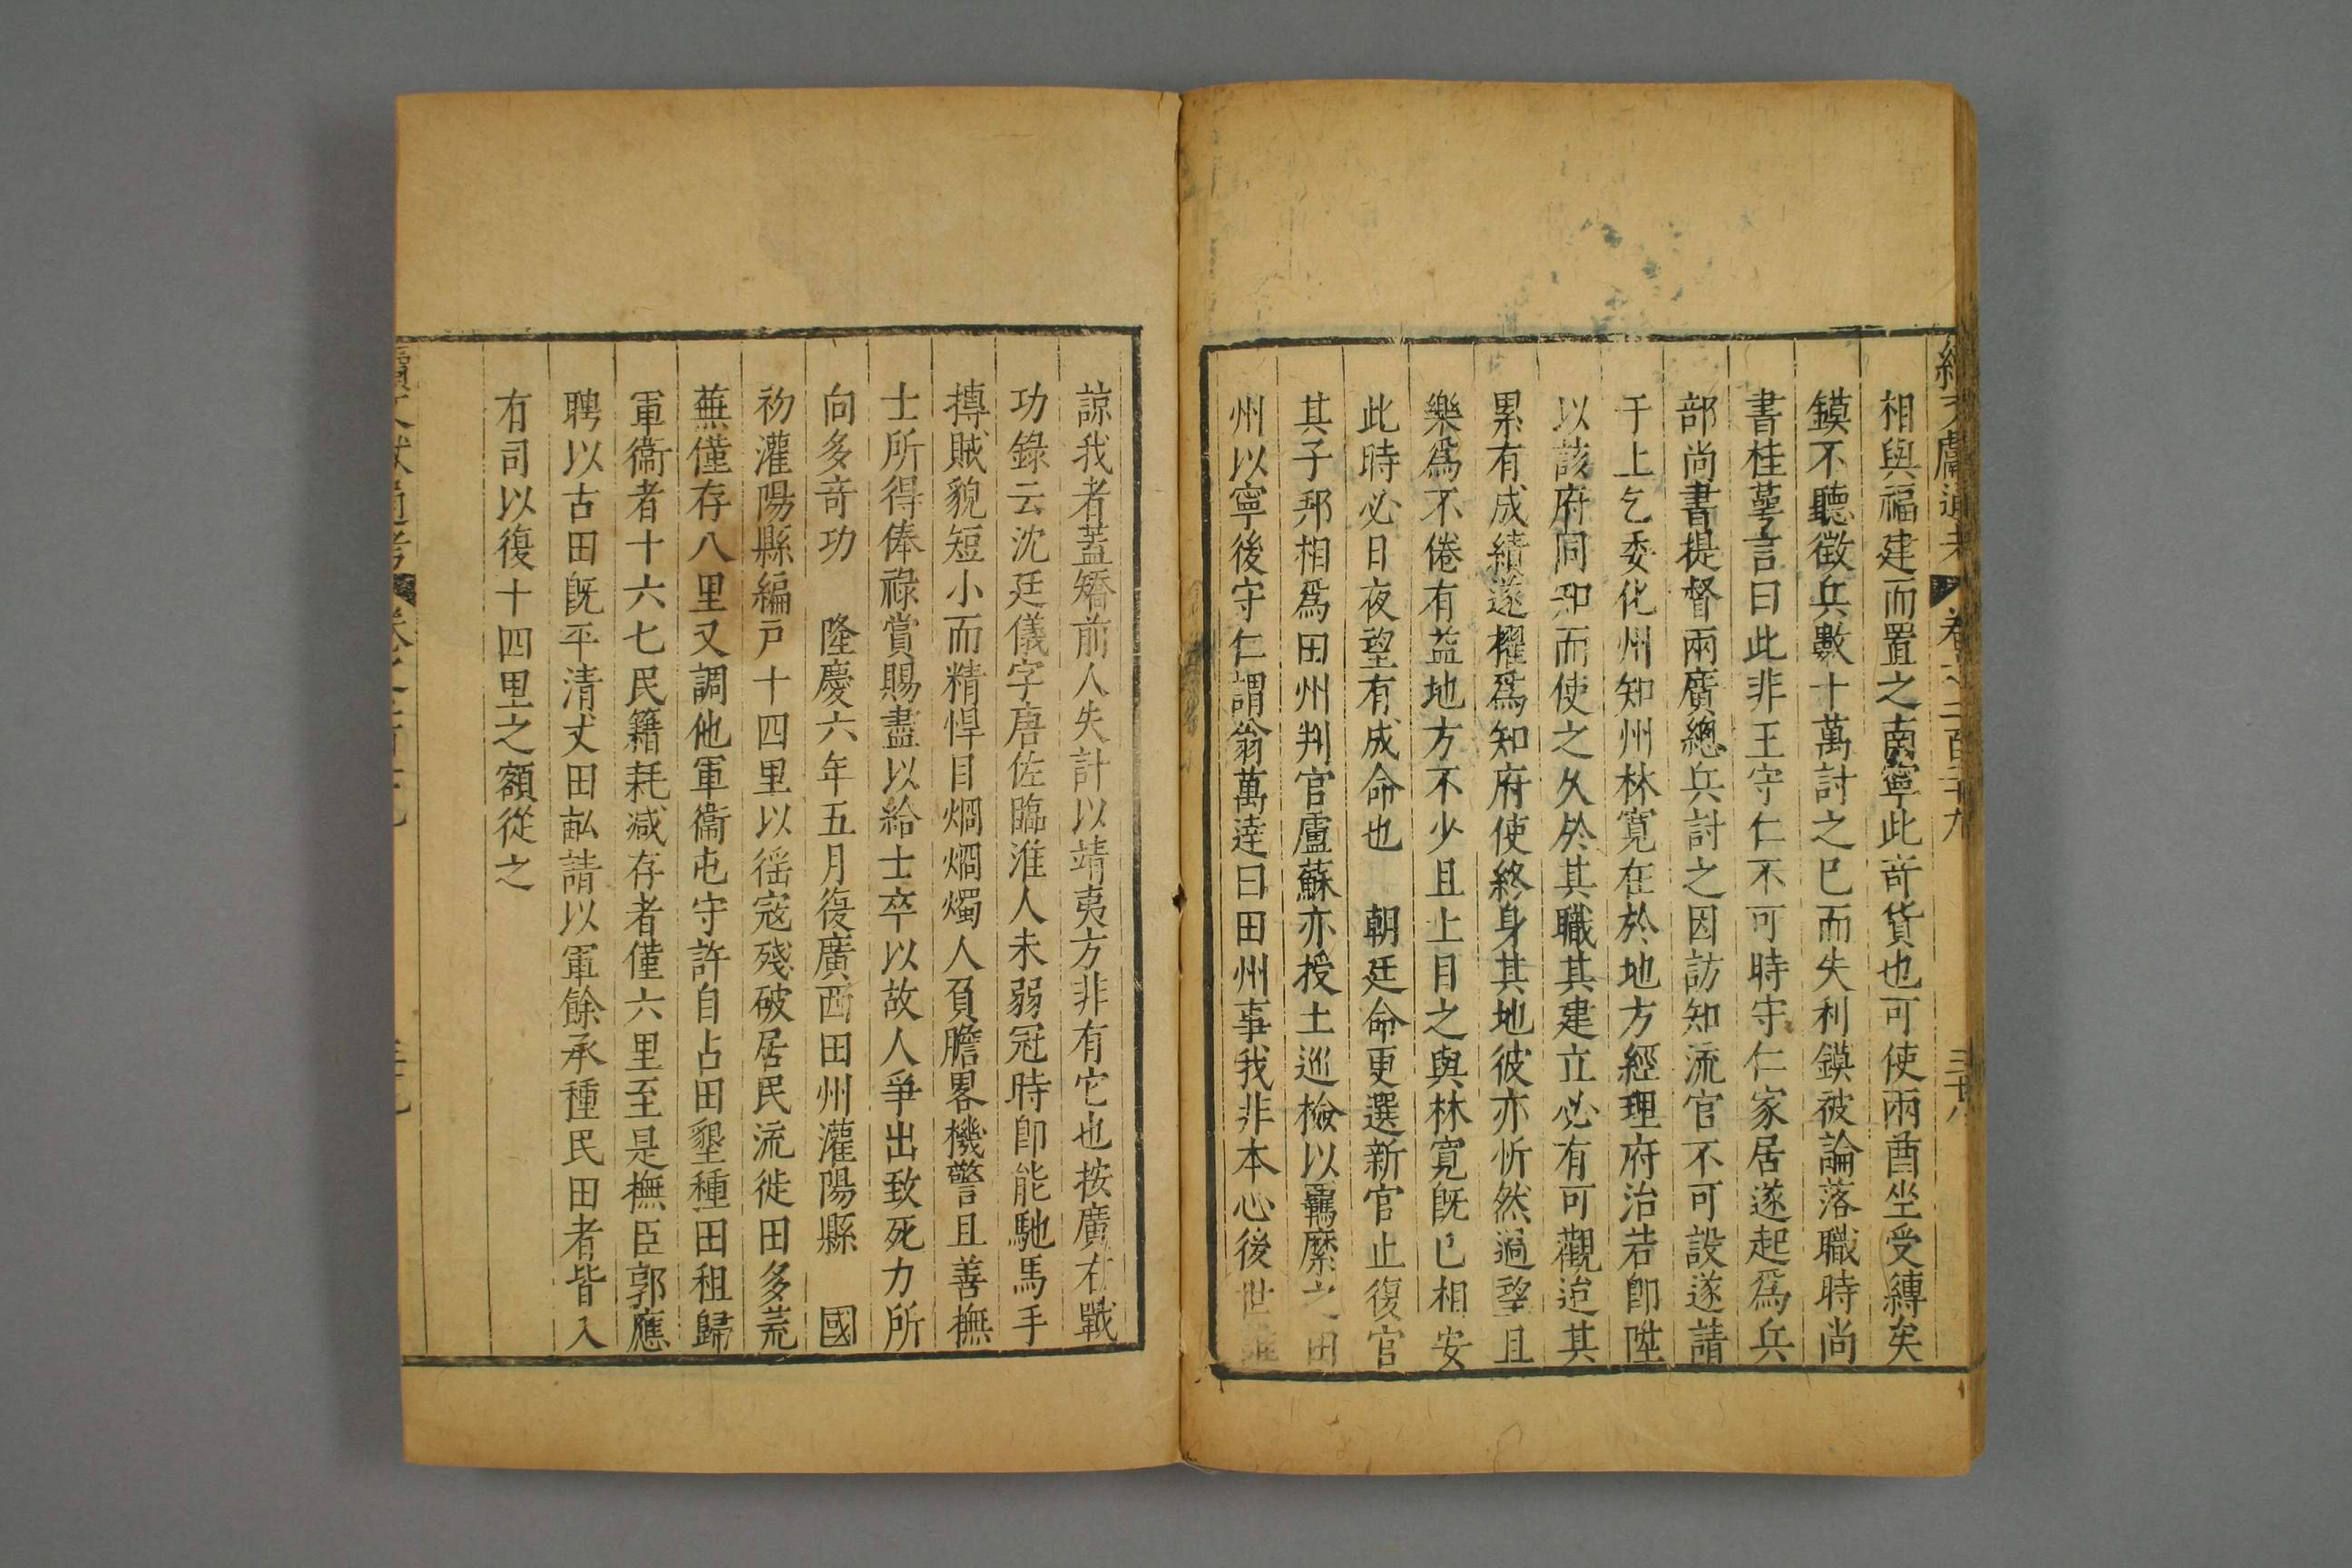 相與福建而置之南寧此奇貨也可使兩酋坐受縛矣
鏌不聽徵兵數十萬討之已而失利鏌被論落職時尚
書桂萼言曰此非王守仁不可時守仁家居遂起爲兵
部尚書提督兩廣總兵討之因訪知流官不可設遂請
于上乞委化州知州林寬在於地方經理府治若卽陞
以該府同知而使之久於其職其建立必有可觀迨其
累有成績遂擢爲知府使終身其地彼亦忻然過望且
樂爲不倦有益地方不少且上日之與林寬旣已相安
此時必日夜望有成命也 朝廷命更選新官止復官
其子邦相爲田州判官盧蘇亦授土巡檢以羈縻之田
州以寧後守仁謂翁萬達曰田州事我非本心後世誰
諒我者蓋矯前人失計以靖夷方非有它也按廣右戰
功錄云沈廷儀字唐佐臨淮人未弱冠時卽能馳馬手
摶賊貌短小而精悍目烱烱燭人負膽畧機警且善撫
士所得俸祿賞賜盡以給士卒以故人爭出致死力所
向多奇功 隆慶六年五月復廣西田州灌陽縣 國
初灌陽縣編戸十四里以徭寇殘破居民流徙田多荒
蕪僅存八里又調他軍衞屯守許自占田墾種田租歸
軍衞者十六七民籍耗减存者僅六里至是撫臣郭應
聘以古田旣平清丈田畝請以軍餘承種民田者皆入
有司以復十四里之額從之